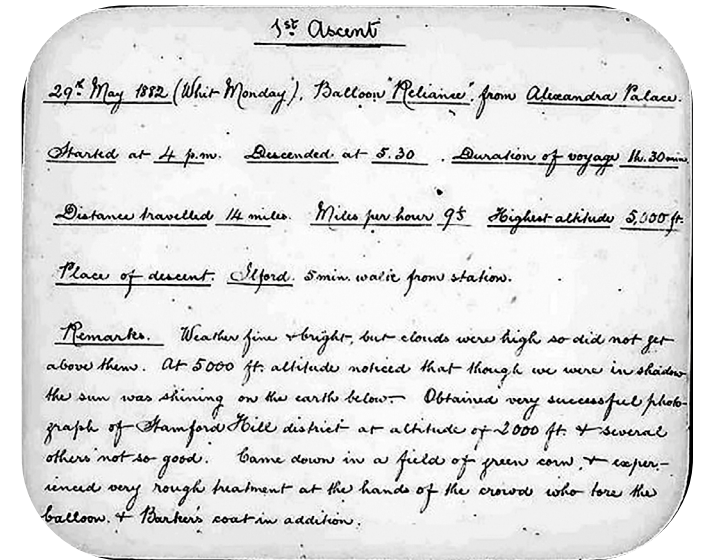 1st Ascent
29th May 1882 (Whit Monday), Balloon "Reliance", from Alexandra Palace.
Started at 4 p.m. Descended at 5.30. Duration of voyage 1h. 30min.
Distance travelled 14 miles. Miles per hour 9.5 Highest altitude 5,000 ft.
Place of descent. Ilford. 5 min. walk from station.
Remarks. Weather fine & bright, but clouds were high so did not get
above them. At 5000 ft. altitude noticed that though we were in shadow
the sun was shining on the earth below— Obtained very successful photo-
graph of Stamford Hill district at altitude of 2000 ft. & several
others not so good. Came down in a field of green corn, & exper-
ienced very rough treatment at the hands of the crowd who tore the
balloon. & Barker's coat in addition.